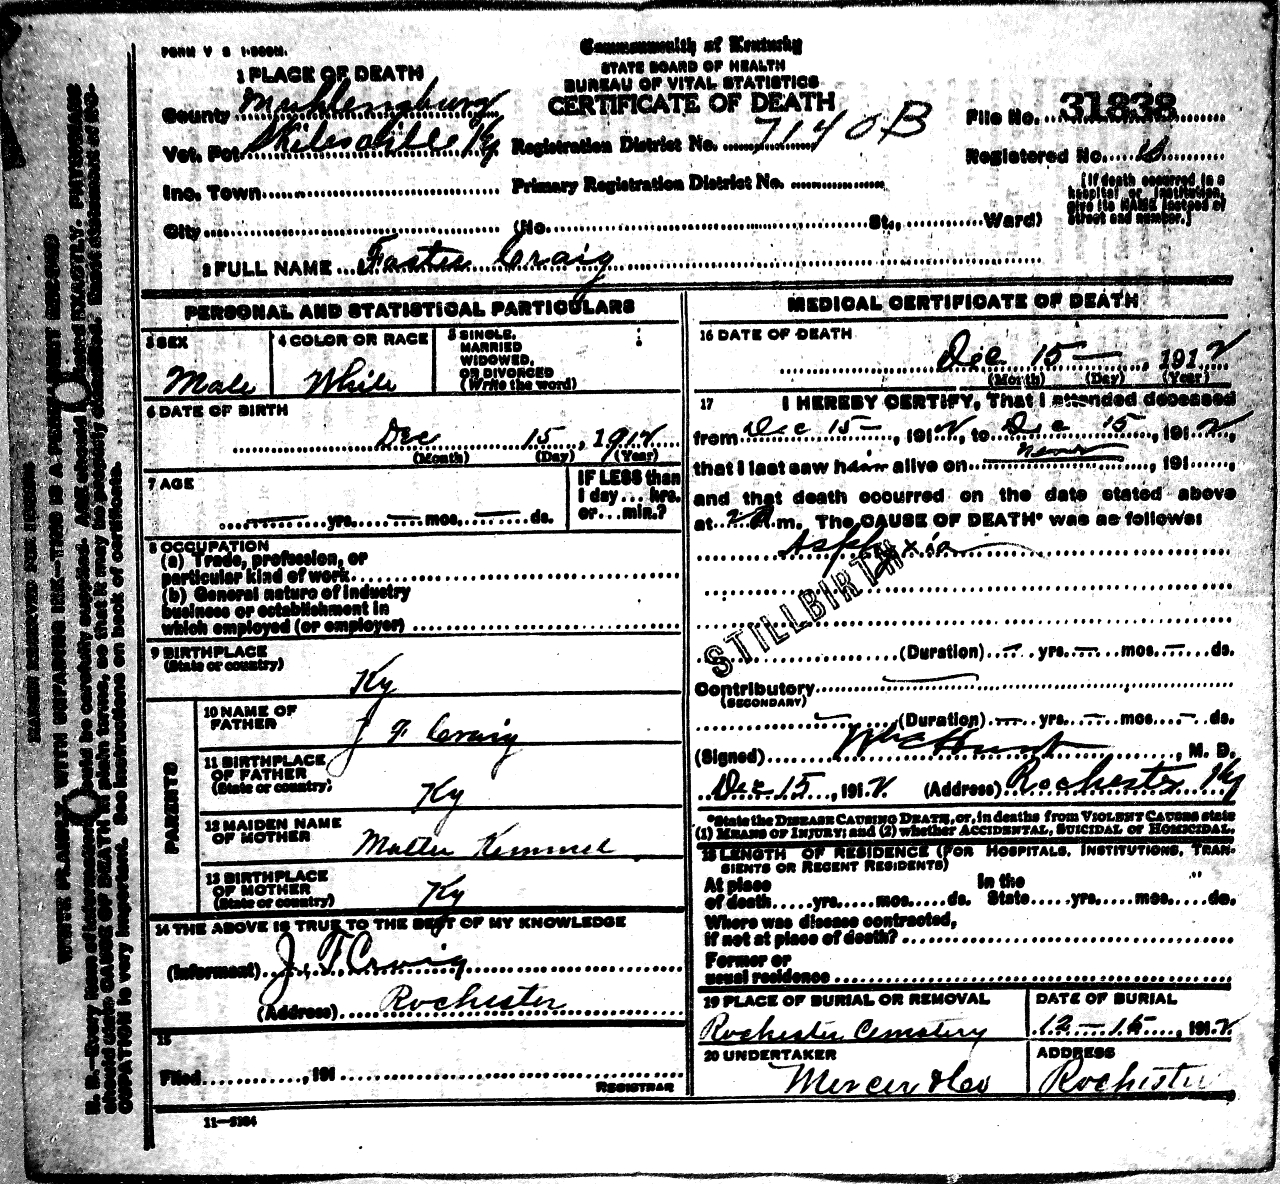 FORM V S 1-500M.
Commonwealth of Kentucky
STATE BOARD OF HEALTH
BUREAU OF VITAL STATISTICS
CERTIFICATE OF DEATH
1 PLACE OF DEATH
County Muhlenburg
Vot. Pct. Skilesville Ky
Inc. Town
City
Registration District No. 7140 B
Primary Registration District No.
(No. St., Ward)
File No. 31838
Registered No.
[If death occurred in a
hospital or institution,
give its NAME instead of
street and number.]
2 FULL NAME Foster Craig
PERSONAL AND STATISTICAL PARTICULARS
3 SEX
Male
4 COLOR OR RACE
White
5 SINGLE,
MARRIED
WIDOWED,
OR DIVORCED
(Write the word)
6 DATE OF BIRTH
Dec 15, 1912
(Month) (Day) (Year)
7 AGE
— yrs. — mos. — ds.
IF LESS than
1 day ... hrs.
or ... min.?
8 OCCUPATION
(a) Trade, profession, or
particular kind of work
(b) General nature of industry
business or establishment in
which employed (or employer)
9 BIRTHPLACE
(State or country)
Ky
PARENTS
10 NAME OF
FATHER
J F Craig
11 BIRTHPLACE
OF FATHER
(State or country)
Ky
12 MAIDEN NAME
OF MOTHER
Kimmel
13 BIRTHPLACE
OF MOTHER
(State or country)
Ky
14 THE ABOVE IS TRUE TO THE BEST OF MY KNOWLEDGE
(Informant) J. F Craig
(Address) Rochester
15
Filed , 191
REGISTRAR
11—3184
MEDICAL CERTIFICATE OF DEATH
16 DATE OF DEATH
Dec 15 — , 1912
(Month) (Day) (Year)
17 I HEREBY CERTIFY, That I attended deceased
from Dec 15 — , 1912, to Dec 15, 1912
that I last saw him alive on never , 191 ,
and that death occurred on the date stated above
at 2 A.m. The CAUSE OF DEATH* was as follows:
Asphyxia
STILLBIRTH
(Duration) — yrs. — mos. — ds.
Contributory
(SECONDARY)
(Duration) — yrs. — mos. — ds.
(Signed) Hunt , M. D.
Dec 15, 1912 (Address) Rochester Ky
*State the DISEASE CAUSING DEATH, or, in deaths from VIOLENT CAUSES state
(1) MEANS OF INJURY; and (2) whether ACCIDENTAL, SUICIDAL OR HOMICIDAL.
18 LENGTH OF RESIDENCE (FOR HOSPITALS, INSTITUTIONS, TRAN-
SIENTS OR RECENT RESIDENTS)
At place
of death yrs. mos. ds.
In the
State yrs. mos. ds.
Where was disease contracted,
if not at place of death?
Former or
usual residence
19 PLACE OF BURIAL OR REMOVAL
Rochester Cemetery
DATE OF BURIAL
12 — 15, 1912
20 UNDERTAKER
Mercer & Co
ADDRESS
Rochester
WRITE PLAINLY, WITH UNFADING INK—THIS IS A PERMANENT RECORD
N. B.—Every item of information should be carefully supplied. AGE should be stated EXACTLY. PHYSICIANS
should state CAUSE OF DEATH in plain terms, so that it may be properly classified. Exact statement of OC-
CUPATION is very important. See instructions on back of certificate.